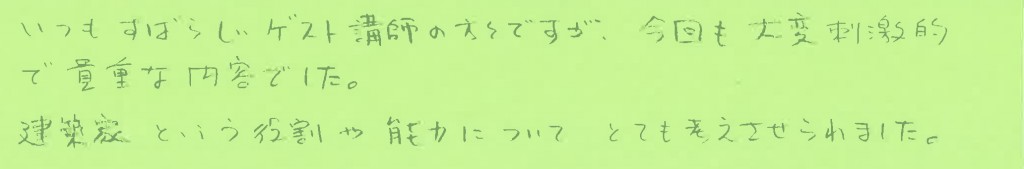 いつもすばらしいゲスト講師の方々ですが、今回も大変刺激的
で貴重な内容でした。
建築家という役割や能力についてとても考えさせられました。